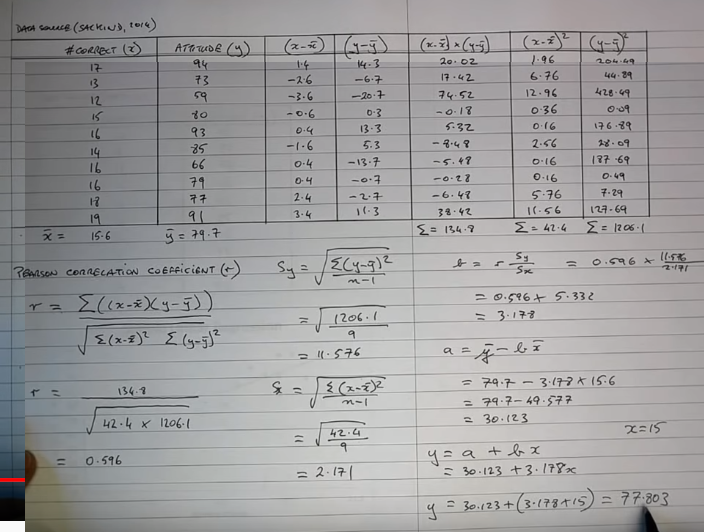 DATA SOURCE (SACKIND, 2014)
# CORRECT (x) ATTITUDE (y) (x-x̄) (y-ȳ) (x-x̄)×(y-ȳ) (x-x̄)² (y-ȳ)²
17 94 1.4 14.3 20.02 1.96 204.49
13 73 -2.6 -6.7 17.42 6.76 44.89
12 59 -3.6 -20.7 74.52 12.96 428.49
15 80 -0.6 0.3 -0.18 0.36 0.09
16 93 0.4 13.3 5.32 0.16 176.89
14 85 -1.6 5.3 -8.48 2.56 28.09
16 66 0.4 -13.7 -5.48 0.16 187.69
16 79 0.4 -0.7 -0.28 0.16 0.49
18 77 2.4 -2.7 -6.48 5.76 7.29
19 91 3.4 11.3 38.42 11.56 127.69
x̄ = 15.6 ȳ = 79.7 Σ = 134.8 Σ = 42.4 Σ = 1206.1
PEARSON CORRELATION COEFFICIENT (r)
r = Σ((x-x̄)(y-ȳ))
√Σ(x-x̄)² Σ(y-ȳ)²
r = 134.8
√42.4 × 1206.1
= 0.596
Sy = √Σ(y-ȳ)²
n-1
= √1206.1
9
= 11.576
Sx = √Σ(x-x̄)²
n-1
= √42.4
9
= 2.171
b = r Sy/Sx = 0.596 × 11.576/2.171
= 0.596 × 5.332
= 3.178
a = ȳ - bx̄
= 79.7 - 3.178 × 15.6
= 79.7 - 49.577
= 30.123
x=15
y = a + bx
= 30.123 + 3.178x
y = 30.123 + (3.178×15) = 77.803